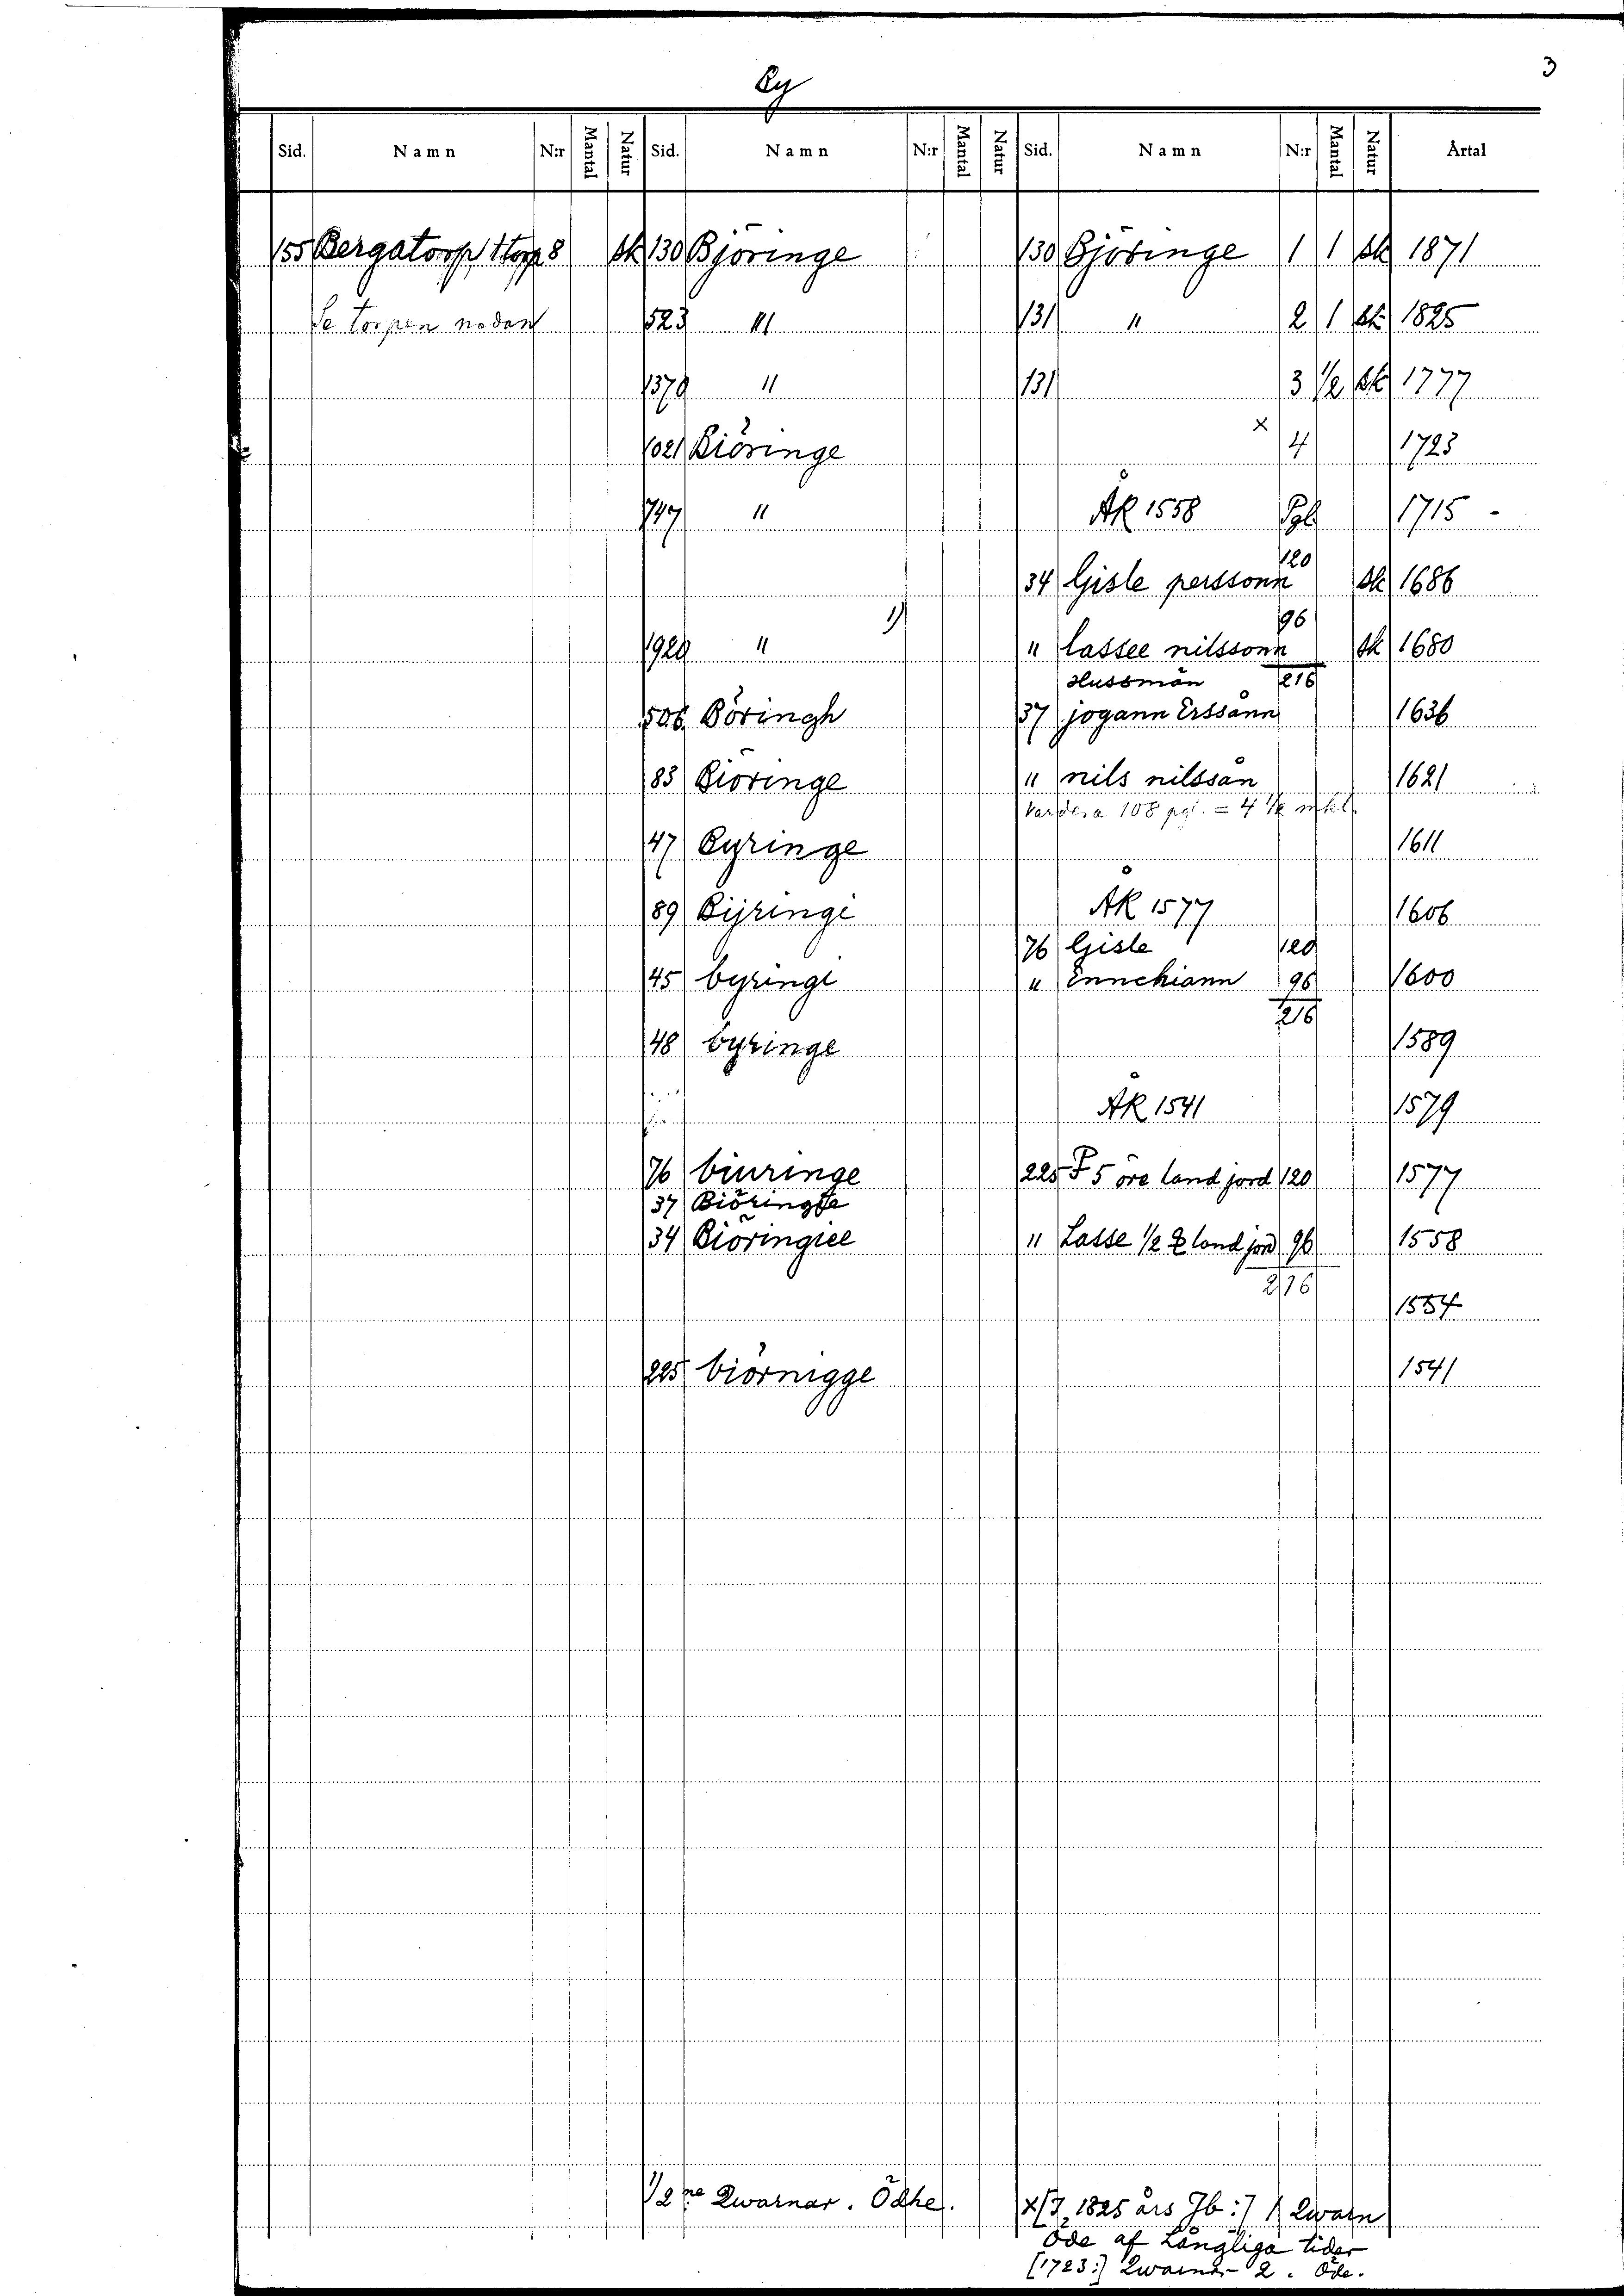 By
3
Sid. Namn N:r Mantal Natur Sid. Namn N:r Mantal Natur Sid. Namn N:r Mantal Natur Årtal
155 Bergatorp 1 torp 8 sk 130 Björinge 130 Björinge 1 1 sk 1871
Se torpen nedan 523 " 131 " 2 1 sk 1825
1379 " 131 3 1/2 sk 1777
1021 Biöringe x 4 1723
747 " ÅR 1558 Pgl 1715 -
120
34 Gisle perssonn sk 1686
1) 96
1920 " " lassee nilssonn sk 1680
Hussmän 216
506 Böringh 37 jogann Erssånn 1636
83 Biöringe " nils nilssån 1621
Vardera 108 pgl. = 4 1/2 mkl.
47 Byringe 1611
89 Bijringe ÅR 1577 1606
76 Gisle 120
45 byringe " Ennchiann 96 1600
216
48 byringe 1589
ÅR 1541 1579
76 biuringe 225 P 5 öre land jord 120 1577
37 Biöringe
34 Biöringiee " Lasse 1/2 land jord 96 1558
216
1554
225 biörnigge 1541
1) 2ne Qwarnar. Ödhe.
x [I 1825 års Jb:] 1 Qwarn
Öde af Långliga tider
[1723:] Qwarnar 2. Öde.